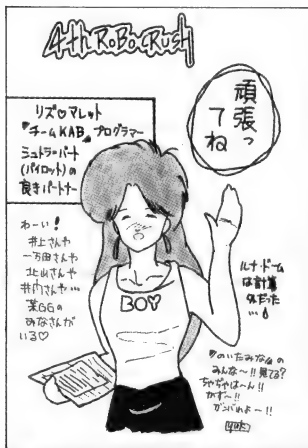 4th RoBo CRush
頑張っ
てね
リズ♡マレット
『チームKAB』プログラマー
シュトラ=バート
(パイロット)の
良きパートナー
わーい!
井上さんや
一万田さんや
北山さんや
井内さんや…
某GGの
みなさんが
いる♡
BOY
ルナ・ドーム
は計算
外だった
…
のいたみなみの
みんな〜!!見てる?
ちゃちゃはーん!!
かず〜!!
ガンバれよー!!